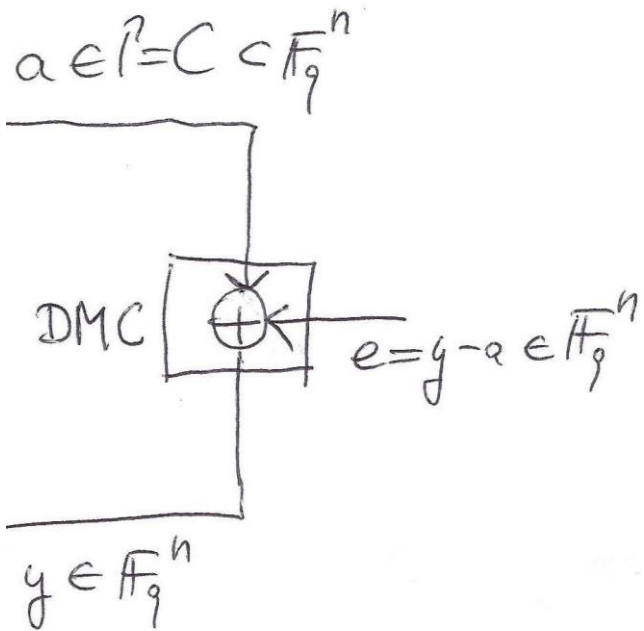 a ∈ Γ = C ⊂ F_q^n
DMC
e = y - a ∈ F_q^n
y ∈ F_q^n